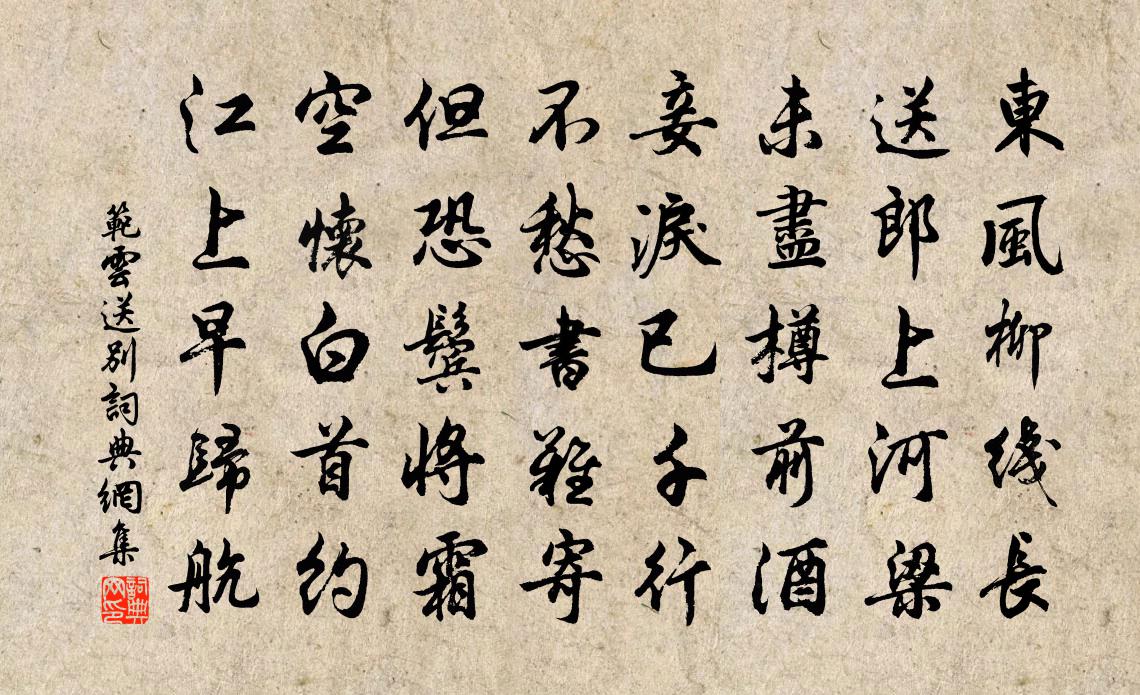 東風柳綫長
送郎上河梁
未盡樽前酒
妾淚已千行
不愁書難寄
但恐鬢將霜
空懷白首約
江上早歸航
範雲送別詞典網集
詞典網印